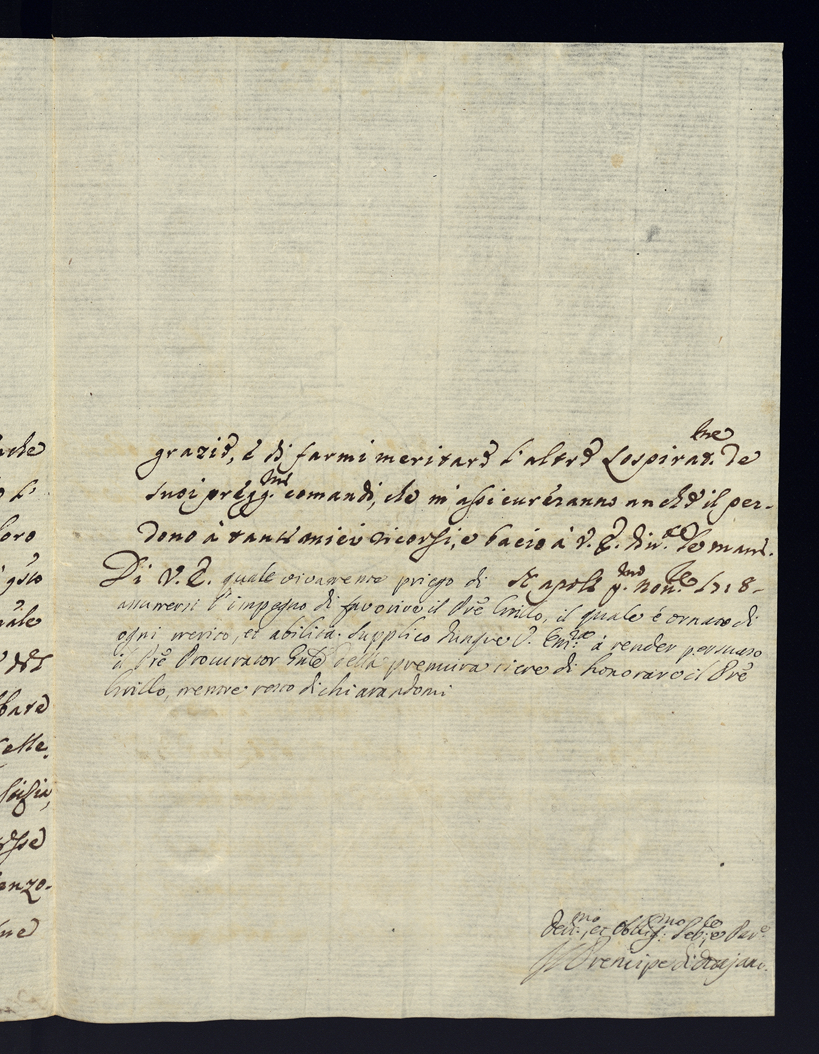 grazie, e di farmi meritare l'altre Cospirat.ne de
suoi pregg.mi comandi, che m'assicureranno anche il per-
dono à tanti miei ricorsi, e bacio à V. E. div.te le mani.
Di V. E. quale vivamente priego di Napoli p.mo Nov.re 1718-
l'impegno di favorire il Prē Grillo, il quale è ornato di
ogni merito, et abilità. Supplico dunque V. Em.za à render persuaso
il Prē Procurator Gnāle della premura di honorare il Prē
Grillo, mentre resto dichiarandomi
Dev.mo, et Obblig.mo
Il Prencipe di
uale
bare
Celle,
orsse
enzo-